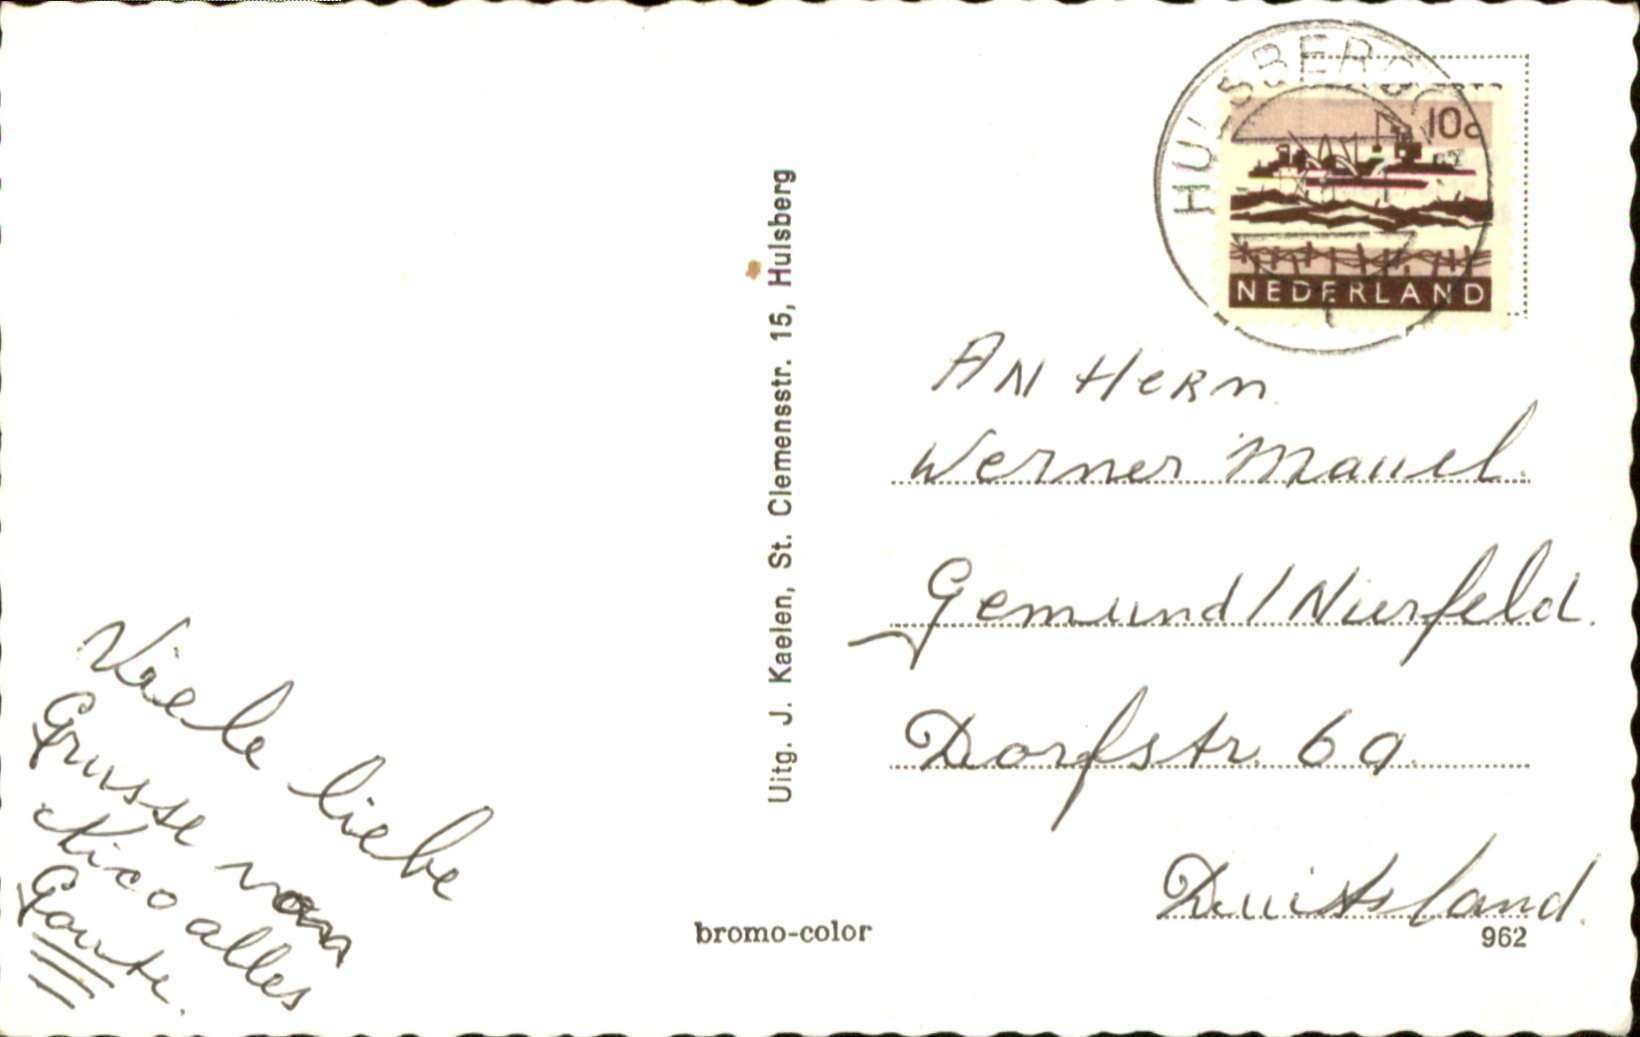 HULSBERG
10c
NEDERLAND
AN HERRN
Werner Mauel.
Gemünd / Nierfeld.
Dorfstr. 69.
Duitsland.
962
Uitg. J. Kaelen, St. Clemensstr. 15, Hulsberg
bromo-color
Viele liebe
Grusse von
Nico alles
Goute.